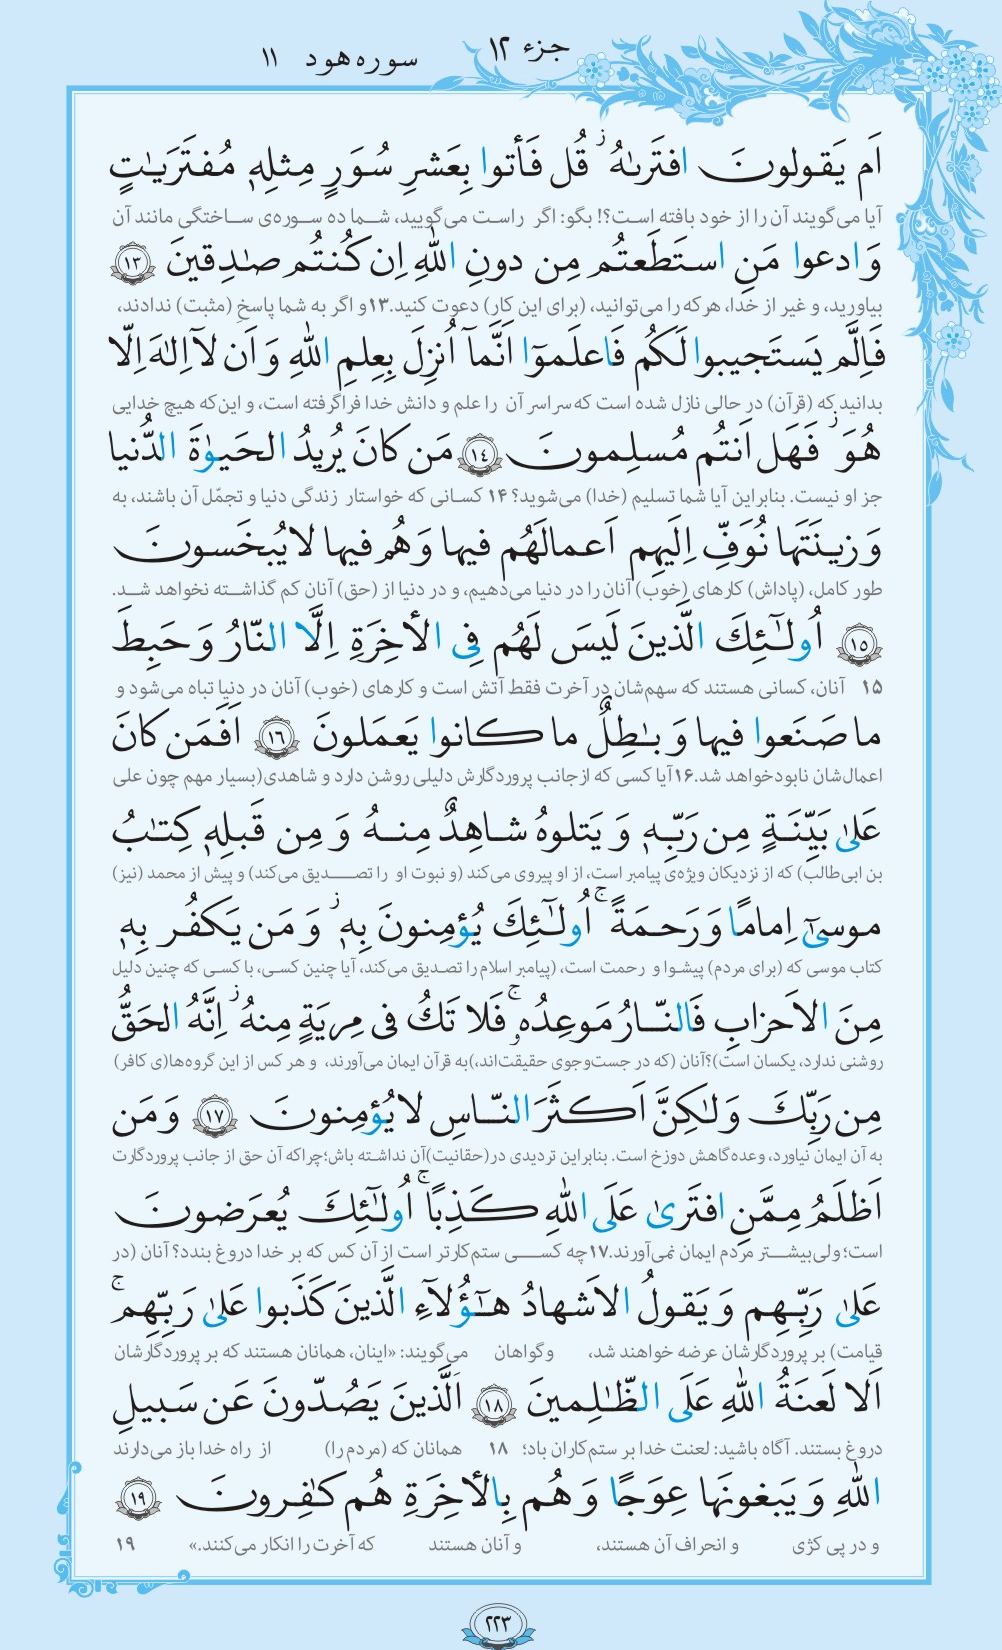 جزء ۱۲
سوره هود ۱۱
اَم يَقولونَ افتَرىٰهُ ۖ قُل فَأتوا بِعَشرِ سُوَرٍ مِثلِهٖ مُفتَرَيٰتٍ
آیا می‌گویند آن را از خود بافته است؟! بگو: اگر راست می‌گویید، شما ده سوره‌ی ساختگی مانند آن
وَ ادعوا مَنِ استَطَعتُم مِن دونِ اللّٰهِ اِن كُنتُم صٰدِقينَ ﴿۱۳﴾
بیاورید، و غیر از خدا، هرکه را می‌توانید، (برای این کار) دعوت کنید.۱۳ و اگر به شما پاسخ (مثبت) ندادند،
فَاِلَّم يَستَجيبوا لَكُم فَاعلَموٓا اَنَّمآ اُنزِلَ بِعِلمِ اللّٰهِ وَ اَن لآ اِلٰهَ اِلّا
بدانید که (قرآن) در حالی نازل شده است که سراسر آن را علم و دانش خدا فراگرفته است، و این‌که هیچ خدایی
هُوَ ۖ فَهَل اَنتُم مُسلِمونَ ﴿۱۴﴾ مَن كانَ يُريدُ الحَيوٰةَ الدُّنيا
جز او نیست. بنابراین آیا شما تسلیم (خدا) می‌شوید؟ ۱۴ کسانی که خواستار زندگی دنیا و تجمّل آن باشند، به
وَ زينَتَها نُوَفِّ اِلَيهِم اَعمالَهُم فيها وَ هُم فيها لا يُبخَسونَ
طور کامل، (پاداش) کارهای (خوب) آنان را در دنیا می‌دهیم، و در دنیا از (حق) آنان کم گذاشته نخواهد شد.
﴿۱۵﴾ اُولٰٓئِكَ الَّذينَ لَيسَ لَهُم فِى الأخِرَةِ اِلَّا النّارُ وَ حَبِطَ
۱۵ آنان، کسانی هستند که سهم‌شان در آخرت فقط آتش است و کارهای (خوب) آنان در دنیا تباه می‌شود و
ما صَنَعوا فيها وَ بٰطِلٌ ما كانوا يَعمَلونَ ﴿۱۶﴾ اَفَمَن كانَ
اعمال‌شان نابود خواهد شد.۱۶ آیا کسی که از جانب پروردگارش دلیلی روشن دارد و شاهدی(بسیار مهم چون علی
عَلىٰ بَيِّنَةٍ مِن رَبِّهٖ وَ يَتلوهُ شاهِدٌ مِنهُ وَ مِن قَبلِهٖ كِتٰبُ
بن ابی‌طالب) که از نزدیکان ویژه‌ی پیامبر است، از او پیروی می‌کند (و نبوت او را تصدیق می‌کند) و پیش از محمد (نیز)
موسىٰٓ اِمامًا وَ رَحمَةً ۚ اُولٰٓئِكَ يُؤمِنونَ بِهٖ ۖ وَ مَن يَكفُر بِهٖ
کتاب موسی که (برای مردم) پیشوا و رحمت است، (پیامبر اسلام را تصدیق می‌کند، آیا چنین کسی، با کسی که چنین دلیل
مِنَ الاَحزابِ فَالنّارُ مَوعِدُهٗ ۚ فَلا تَكُ فى مِريَةٍ مِنهُ ۖ اِنَّهُ الحَقُّ
روشنی ندارد، یکسان است)؟آنان (که در جست‌وجوی حقیقت‌اند،)به قرآن ایمان می‌آورند، و هر کس از این گروه‌ها(ی کافر)
مِن رَبِّكَ وَ لٰكِنَّ اَكثَرَ النّاسِ لا يُؤمِنونَ ﴿۱۷﴾ وَ مَن
به آن ایمان نیاورد، وعده‌گاهش دوزخ است. بنابراین تردیدی در(حقانیت)آن نداشته باش؛چراکه آن حق از جانب پروردگارت
اَظلَمُ مِمَّنِ افتَرىٰ عَلَى اللّٰهِ كَذِبًا ۚ اُولٰٓئِكَ يُعرَضونَ
است؛ ولی بیشتر مردم ایمان نمی‌آورند.۱۷ چه کسی ستم‌کارتر است از آن کس که بر خدا دروغ بندد؟ آنان (در
عَلىٰ رَبِّهِم وَ يَقولُ الاَشهادُ هٰٓؤُلآءِ الَّذينَ كَذَبوا عَلىٰ رَبِّهِم ۚ
قیامت) بر پروردگارشان عرضه خواهند شد، وگواهان می‌گویند: «اینان، همانان هستند که بر پروردگارشان
اَلا لَعنَةُ اللّٰهِ عَلَى الظّٰلِمينَ ﴿۱۸﴾ اَلَّذينَ يَصُدّونَ عَن سَبيلِ
دروغ بستند. آگاه باشید: لعنت خدا بر ستم‌کاران باد؛ ۱۸ همانان که (مردم را) از راه خدا باز می‌دارند
اللّٰهِ وَ يَبغونَها عِوَجًا وَ هُم بِالأخِرَةِ هُم كٰفِرونَ ﴿۱۹﴾
و در پی کژی و انحراف آن هستند، و آنان هستند که آخرت را انکار می‌کنند.» ۱۹
۲۲۳